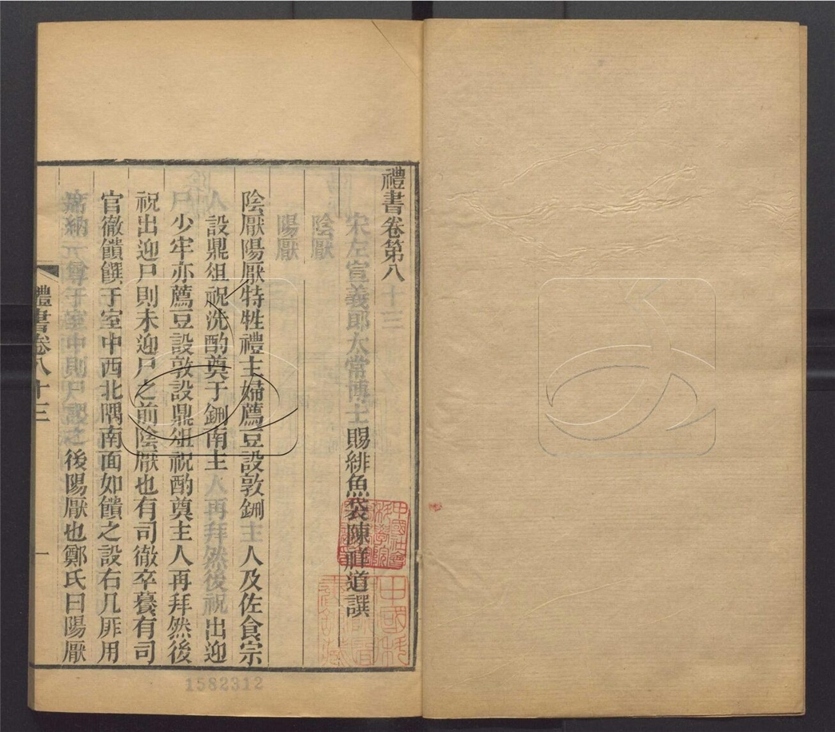 禮書卷第八十三
宋左宣義郎太常博士賜緋魚袋陳祥道譔
陰厭
陽厭
陰厭陽厭特牲禮主婦薦豆設敦鉶主人及佐食宗
人設鼎俎祝洗酌奠于鉶南主人再拜然後祝出迎
尸少牢亦薦豆設敦設鼎俎祝酌奠主人再拜然後
祝出迎尸則未迎尸之前陰厭也有司徹卒養有司
官徹饋饌于室中西北隅南面如饋之設右几厞用
席納一尊于室中則尸謖之後陽厭也鄭氏曰陽厭
禮書卷八十三
一
1582312